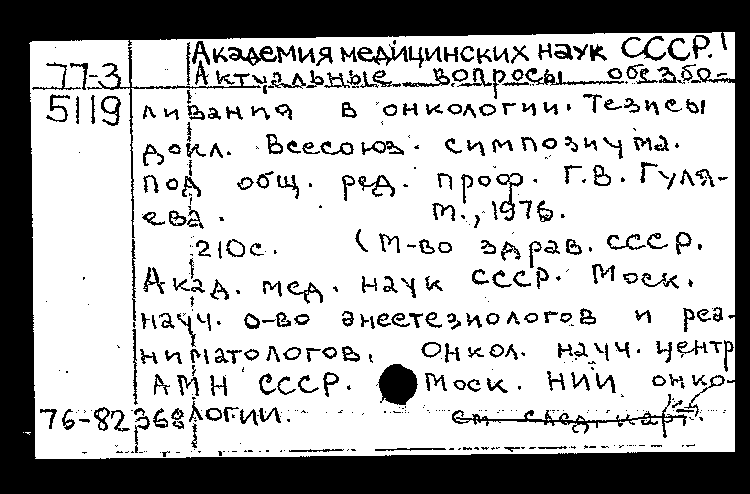 Академия медицинских наук СССР.
77-3 Актуальные вопросы обезбо-
5119 ливания в онкологии. Тезисы
докл. Всесоюз. симпозиума.
под общ. ред. проф. Г.В. Гуля-
ева. М., 1976.
210с. (М-во здрав. СССР.
Акад. мед. наук СССР. Моск.
науч. о-во анестезиологов и реа-
ниматологов. Онкол. науч. центр
АМН СССР. Моск. НИИ онко-
76-82368 логии. см след. карт.